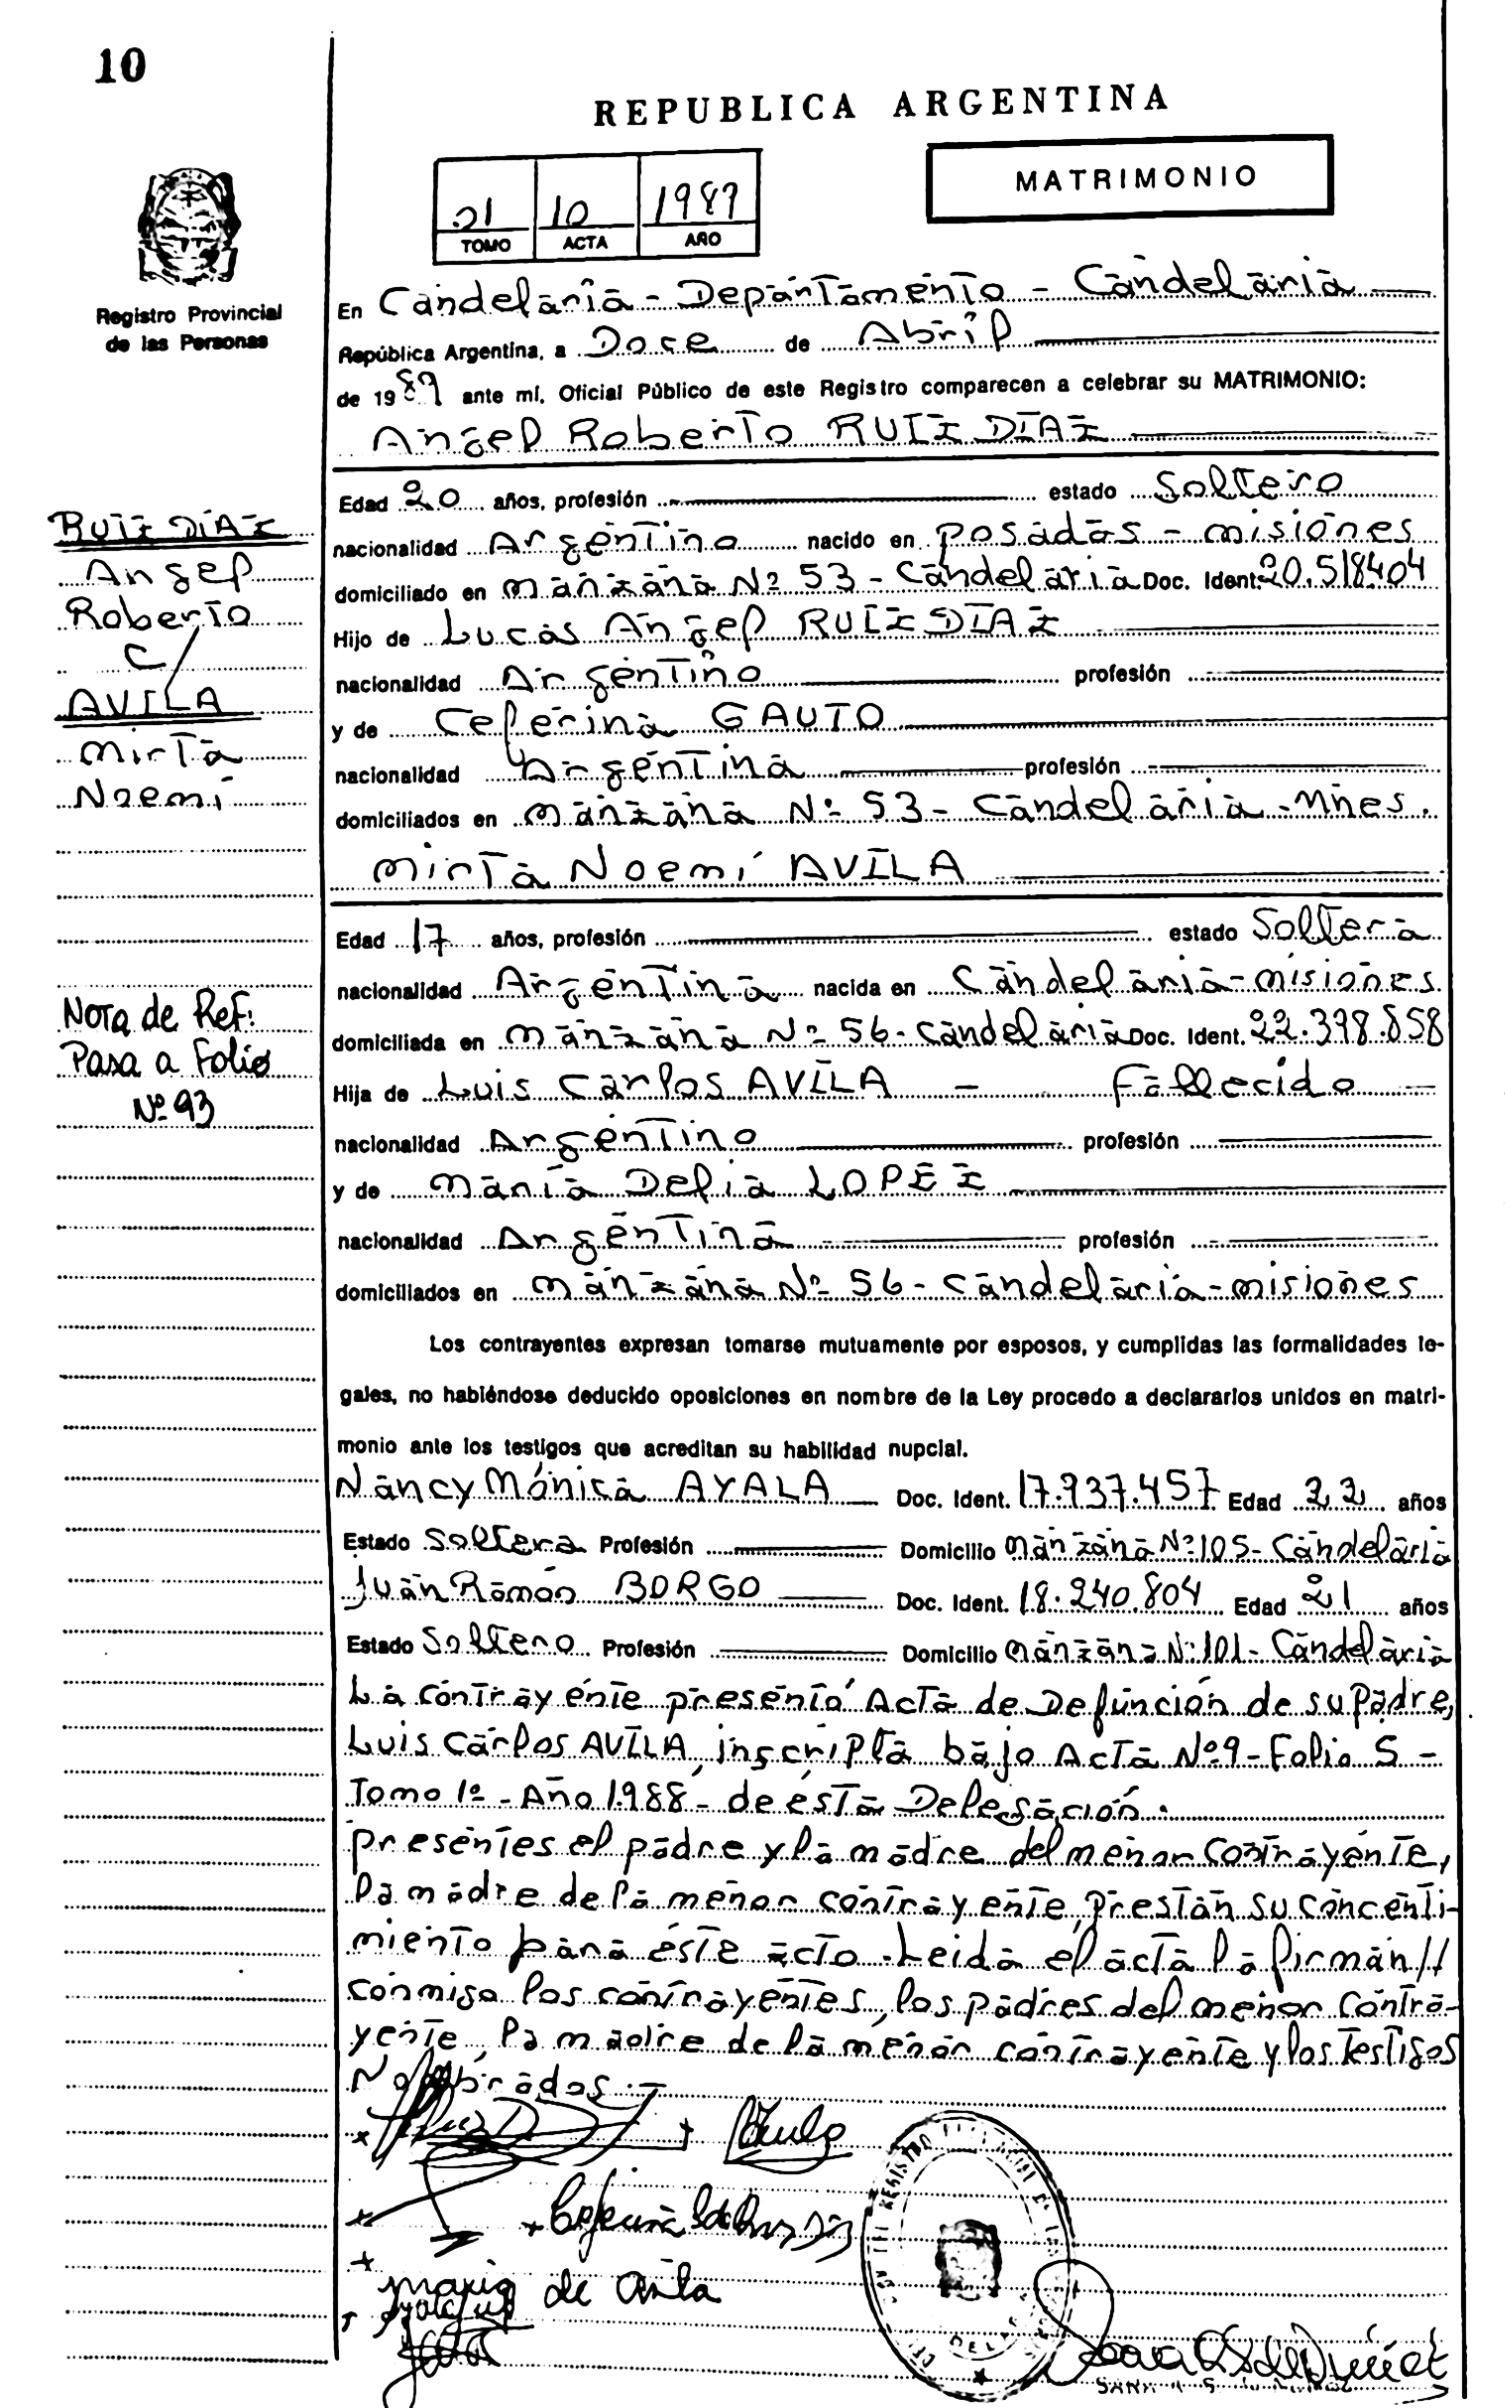 10
REPUBLICA ARGENTINA
MATRIMONIO
01 10 1989
TOMO ACTA AÑO
Registro Provincial
de las Personas
En Candelaria - Departamento - Candelaria
República Argentina, a Doce de Abril
de 1989 ante mí, Oficial Público de este Registro comparecen a celebrar su MATRIMONIO:
Angel Roberto RUIZ DIAZ
Edad 20 años, profesión estado Soltero
nacionalidad Argentino nacido en Posadas - misiones
domiciliado en manzana Nº 53 - Candelaria Doc. Ident. 20.518404
Hijo de Lucas Angel RUIZ DIAZ
nacionalidad Argentino profesión
y de Ceferina GAUTO
nacionalidad Argentina profesión
domiciliados en manzana Nº 53 - Candelaria - Mnes.
Mirta Noemí AVILA
Edad 17 años, profesión estado Soltera
nacionalidad Argentina nacida en Candelaria - misiones
domiciliada en manzana Nº 56 - Candelaria Doc. Ident. 22.398.858
Hija de Luis Carlos AVILA - Fallecido
nacionalidad Argentino profesión
y de María Delia LOPEZ
nacionalidad Argentina profesión
domiciliados en manzana Nº 56 - Candelaria - misiones
Los contrayentes expresan tomarse mutuamente por esposos, y cumplidas las formalidades le-
gales, no habiéndose deducido oposiciones en nombre de la Ley procedo a declararlos unidos en matri-
monio ante los testigos que acreditan su habilidad nupcial.
Nancy Mónica AYALA Doc. Ident. 17.937.457 Edad 22 años
Estado Soltera Profesión Domicilio manzana Nº 105 - Candelaria
Juan Ramón BORGO Doc. Ident. 18.240.804 Edad 21 años
Estado Soltero Profesión Domicilio manzana Nº 101 - Candelaria
La contrayente presentó Acta de Defunción de su Padre,
Luis Carlos AVILA, inscripta bajo Acta Nº 9 - Folio 5 -
Tomo 1º - Año 1988 - de ésta Delegación.
presentes el padre y la madre del menor contrayente,
la madre de la menor contrayente, prestan su concenti-
miento para éste acto. Leida el acta la firman //
conmigo los contrayentes, los padres del menor contra-
yente, la madre de la menor contrayente y los testigos
Nombrados.-
RUIZ DIAZ
Angel
Roberto
C/
AVILA
Mirta
Noemí
Nota de Ref:
Pasa a Folio
Nº 93
maria de Avila